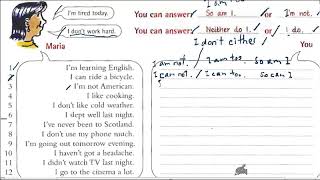 I am too
I'm tired today.
You can answer: So am I. or I'm not.
I don't work hard.
You can answer: Neither do I. or I do.
I don't either
Maria
You
1 I'm learning English. I am not. / I am too. So am I
2 I can ride a bicycle. I can not. / I can too. So can I
3 I'm not American.
4 I like cooking.
5 I don't like cold weather.
6 I slept well last night.
7 I've never been to Scotland.
8 I don't use my phone much.
9 I'm going out tomorrow evening.
10 I haven't got a headache.
11 I didn't watch TV last night.
12 I go to the cinema a lot.